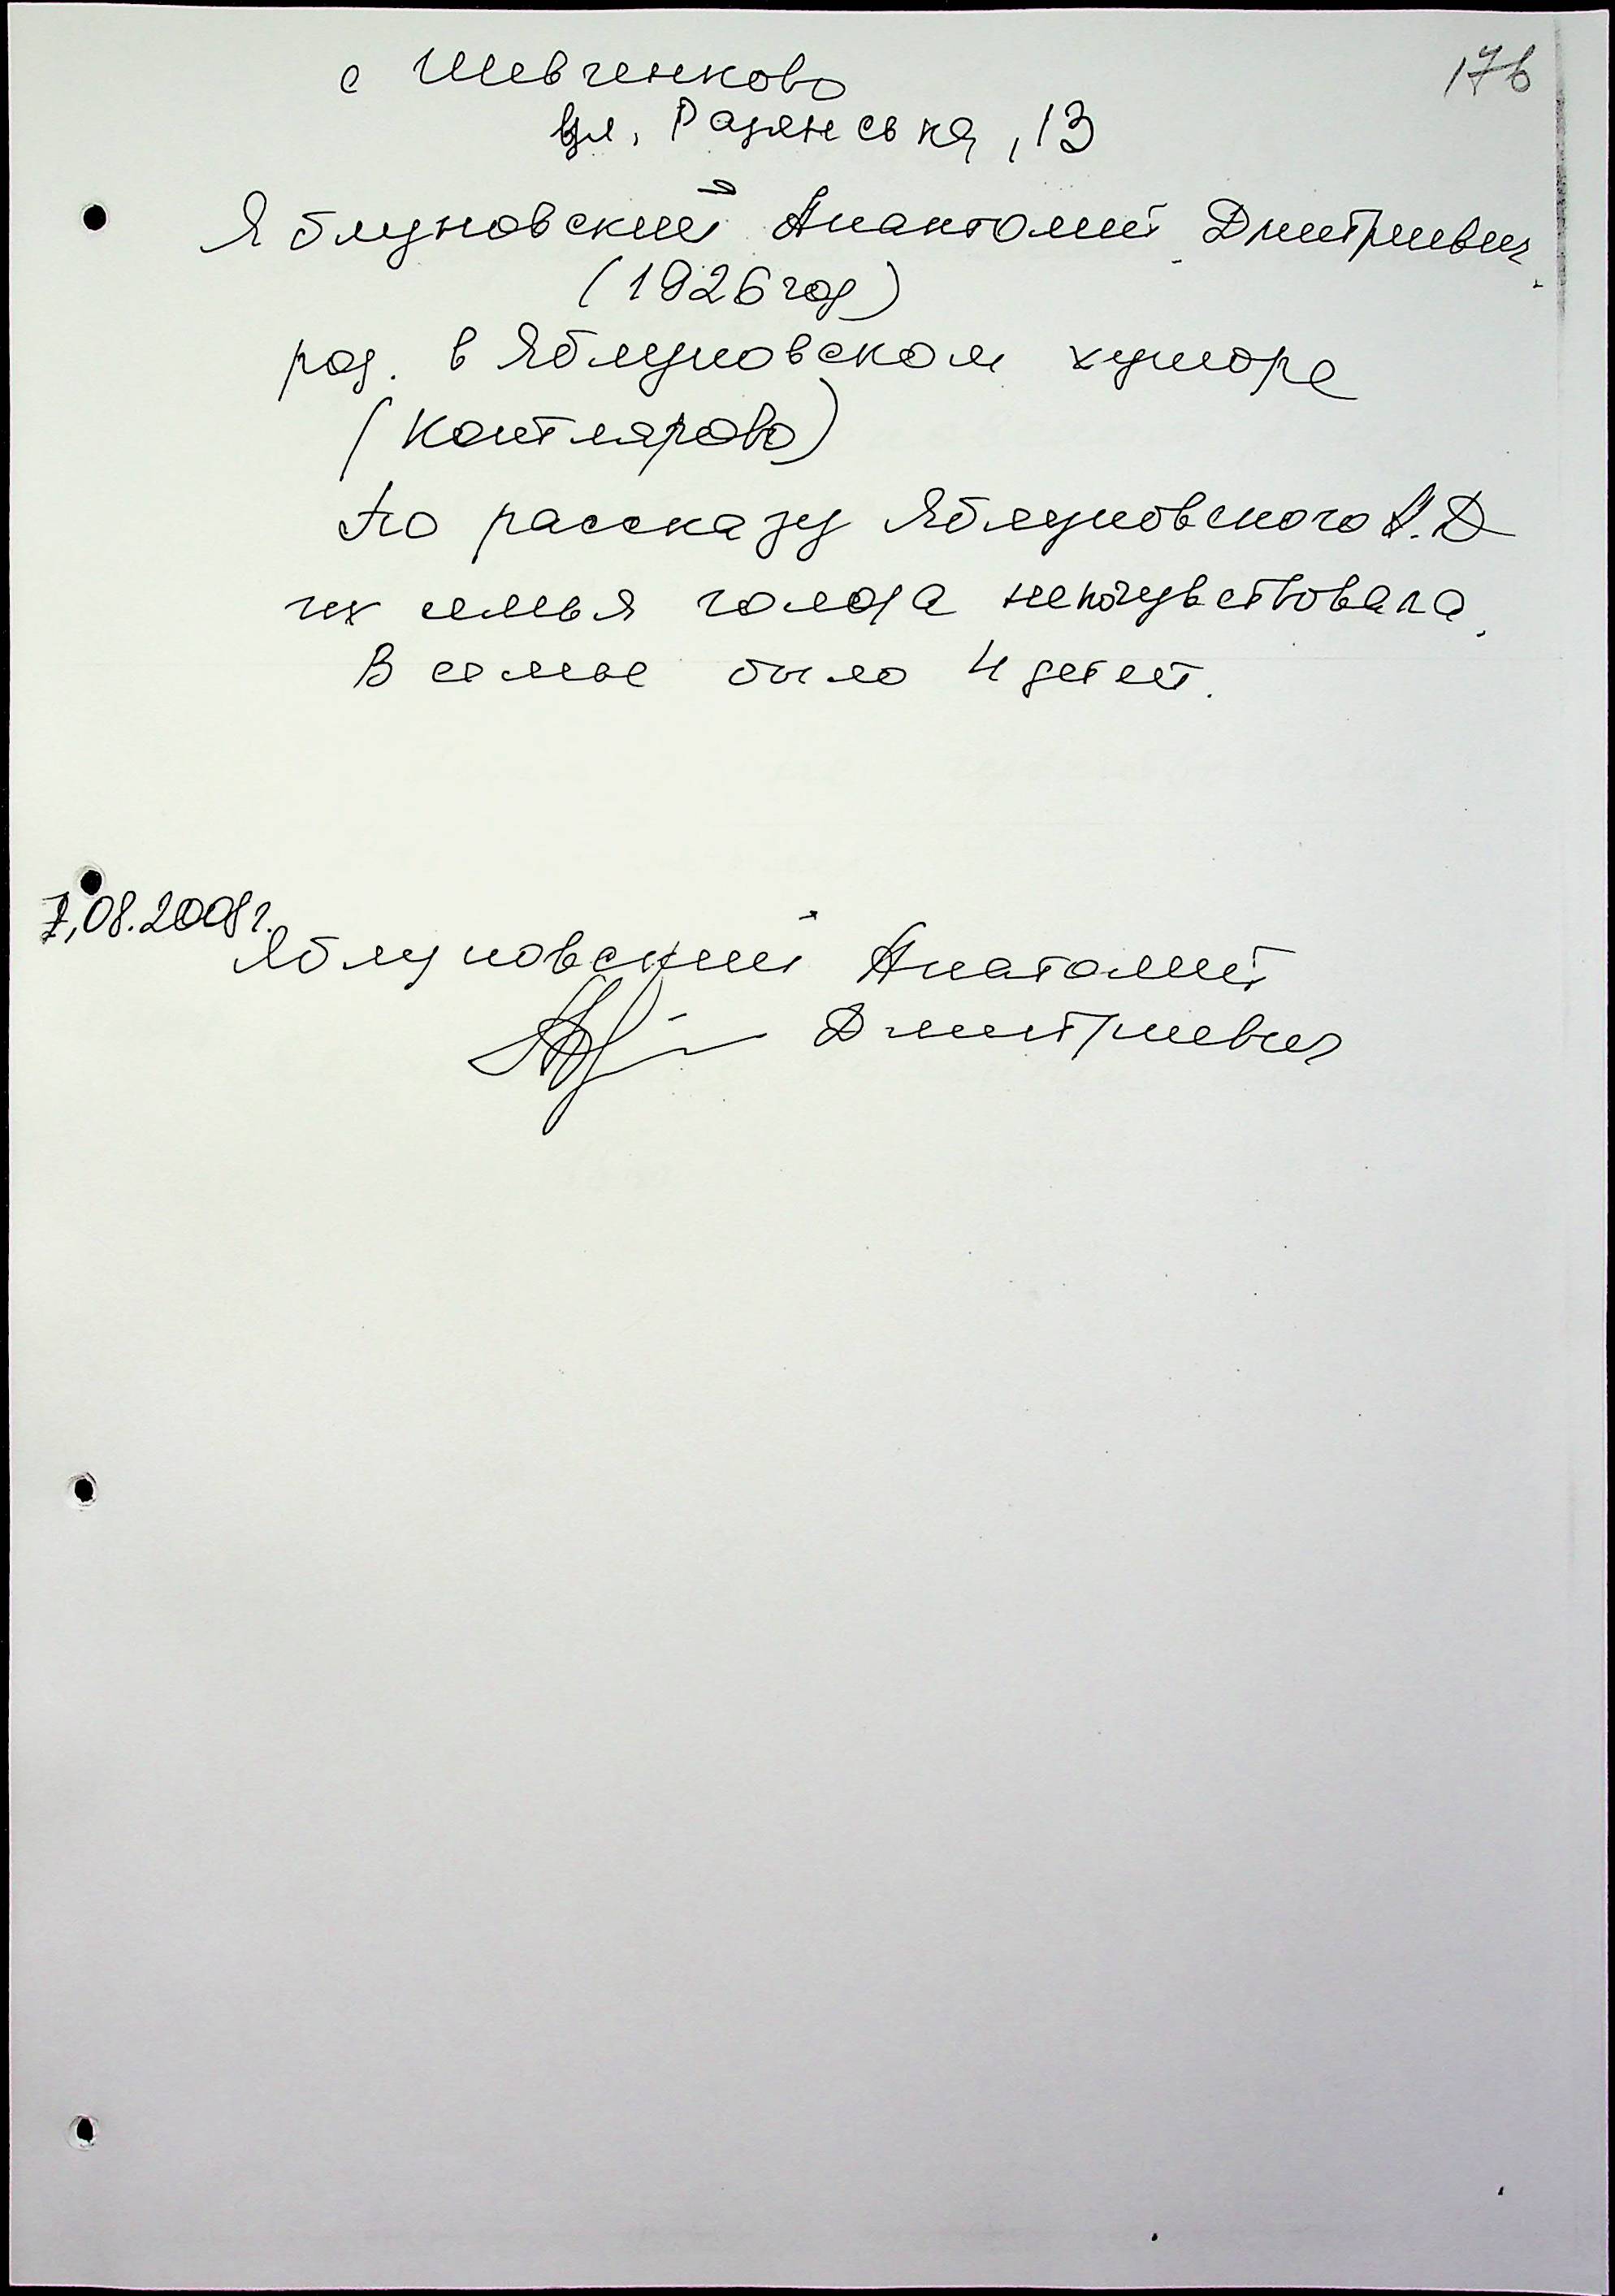 176
с Шевченково
вул. Радянська, 13
Яблуновский Анантолий Дмитриевич
(1926 год)
род. в Яблуновском хуторе
(Контлярово)
По рассказу Яблуновского А.Д
их семья голода непочувствовала.
В семье было 4 детей.
7.08.2008г.
Яблуновский Анатолий
Дмитриевич